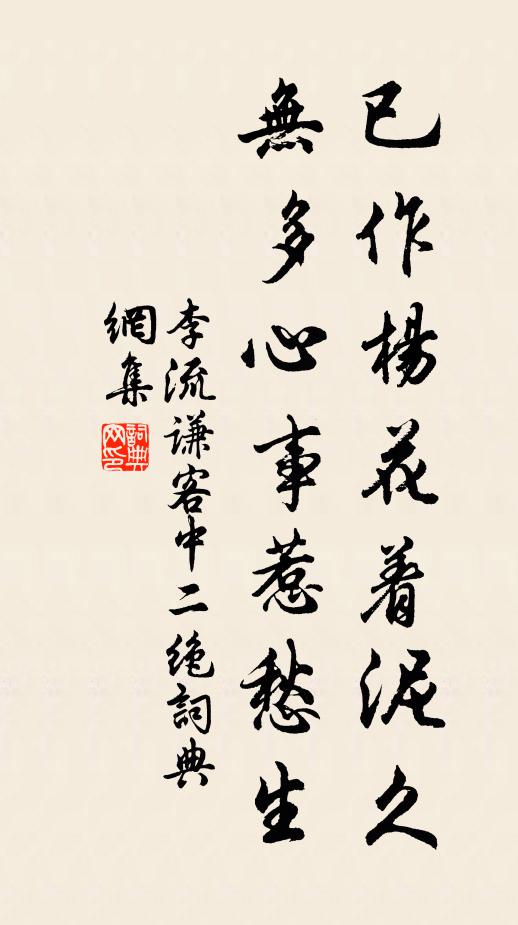 已作楊花着泥久
無多心事惹愁生
李流謙客中二絶詞典
網集
詞典网印